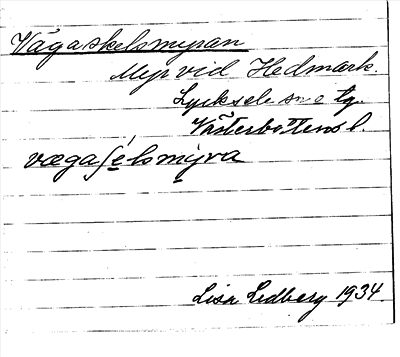 Vägaskelsmyran
Myr vid Hedmark.
Lycksele sn o tg.
Västerbottens l.
vægaʃélsmýra
Lisa Lidberg 1934.